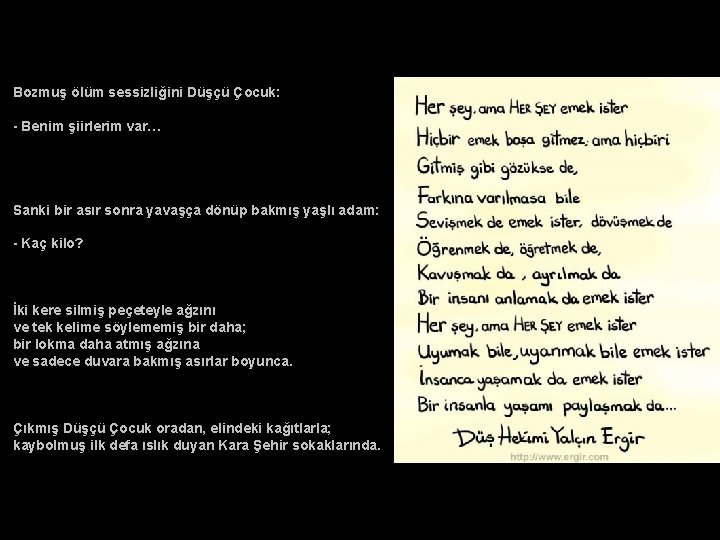 Bozmuş ölüm sessizliğini Düşçü Çocuk:
- Benim şiirlerim var…
Sanki bir asır sonra yavaşça dönüp bakmış yaşlı adam:
- Kaç kilo?
İki kere silmiş peçeteyle ağzını
ve tek kelime söylememiş bir daha;
bir lokma daha atmış ağzına
ve sadece duvara bakmış asırlar boyunca.
Çıkmış Düşçü Çocuk oradan, elindeki kağıtlarla;
kaybolmuş ilk defa ıslık duyan Kara Şehir sokaklarında.
Her şey, ama HER ŞEY emek ister
Hiçbir emek boşa gitmez, ama hiçbiri
Gitmiş gibi gözükse de,
Farkına varılmasa bile
Sevişmek de emek ister, dövüşmek de
Öğrenmek de, öğretmek de,
Kavuşmak da, ayrılmak da
Bir insanı anlamak da emek ister
Her şey, ama HER ŞEY emek ister
Uyumak bile, uyanmak bile emek ister
İnsanca yaşamak da emek ister
Bir insanla yaşamı paylaşmak da...
Düş Hekimi Yalçın Ergir
http://www.ergir.com